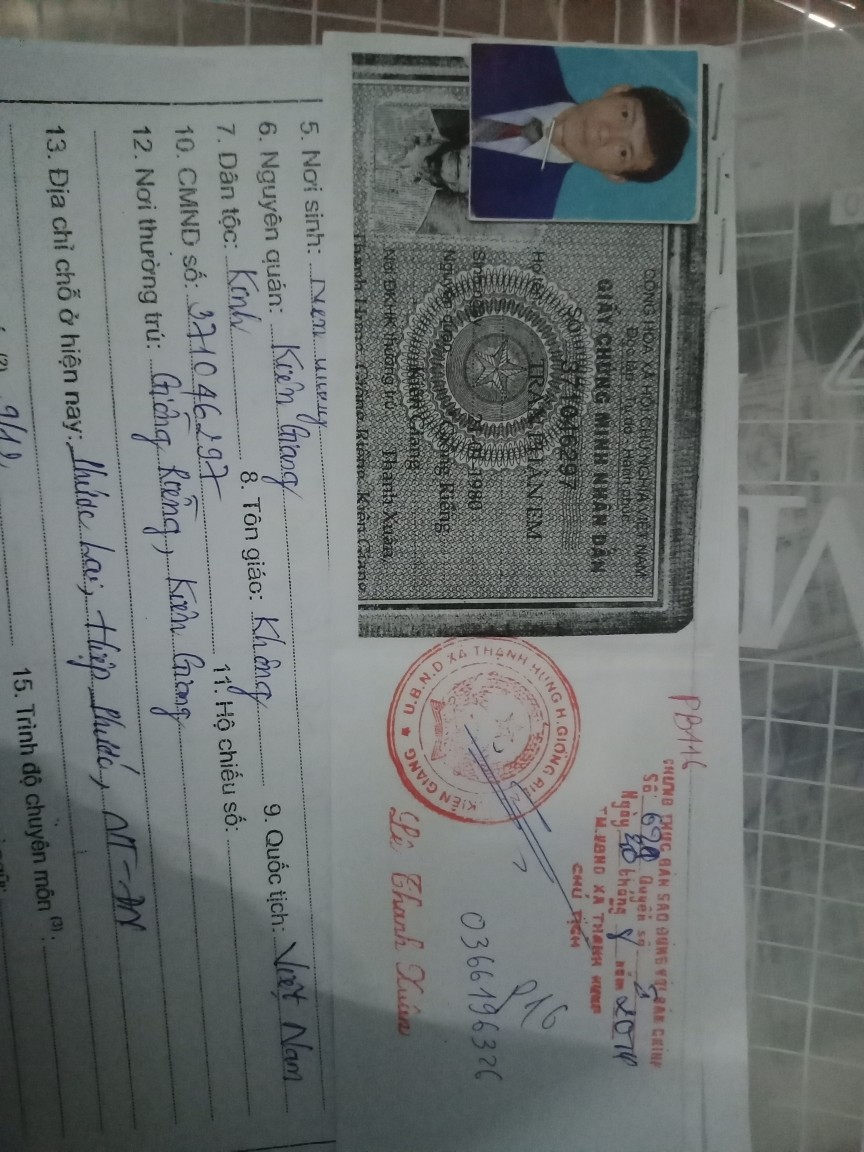 CỘNG HÒA XÃ HỘI CHỦ NGHĨA VIỆT NAM
Độc lập - Tự do - Hạnh phúc
GIẤY CHỨNG MINH NHÂN DÂN
Số 371046297
Họ tên TRẦN PHẤN EM
1980
Nguyên quán Giồng Riềng
Kiên Giang
Nơi ĐKHK thường trú Thạnh Xuân,
Thạnh Hưng, Giồng Riềng, Kiên Giang
PB116
CHỨNG THỰC BẢN SAO ĐÚNG VỚI BẢN CHÍNH
Số: Quyển số
Ngày tháng năm 2014
TM.UBND XÃ THẠNH HƯNG
CHỦ TỊCH
U.B.N.D XÃ THẠNH HƯNG H.GIỒNG RIỀNG
KIÊN GIANG
Lê Thanh Xuân
P16
0366196326
5. Nơi sinh:
6. Nguyên quán: Kiên Giang
7. Dân tộc: Kinh 8. Tôn giáo: Không 9. Quốc tịch: Việt Nam
10. CMND số: 371046297 11. Hộ chiếu số:
12. Nơi thường trú: Giồng Riềng, Kiên Giang
13. Địa chỉ chỗ ở hiện nay: Phước Lai, Hiệp Phước, NT-ĐN
9/12 15. Trình độ chuyên môn (3):